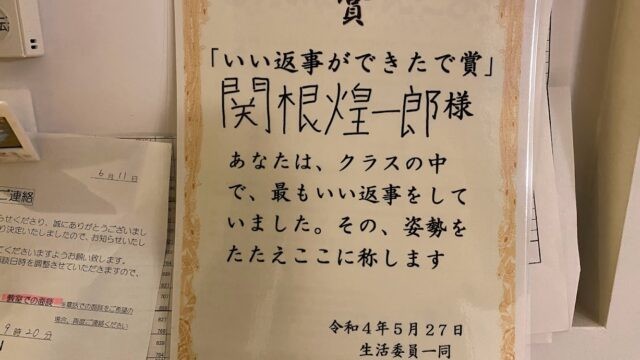 賞
「いい返事ができたで賞」
関根煌一郎様
あなたは、クラスの中
で、最もいい返事をして
いました。その、姿勢を
たたえここに称します
令和4年5月27日
生活委員一同
6月11日
ご連絡
らせくださり、誠にありがとうございまし
り決定いたしましたので、お知らせいたし
てくださいますようお願い致します。
談日時を調整させていただきますので、
教室での面談
※電話での面談をご希望の
場合、再度ご連絡ください
9時20分